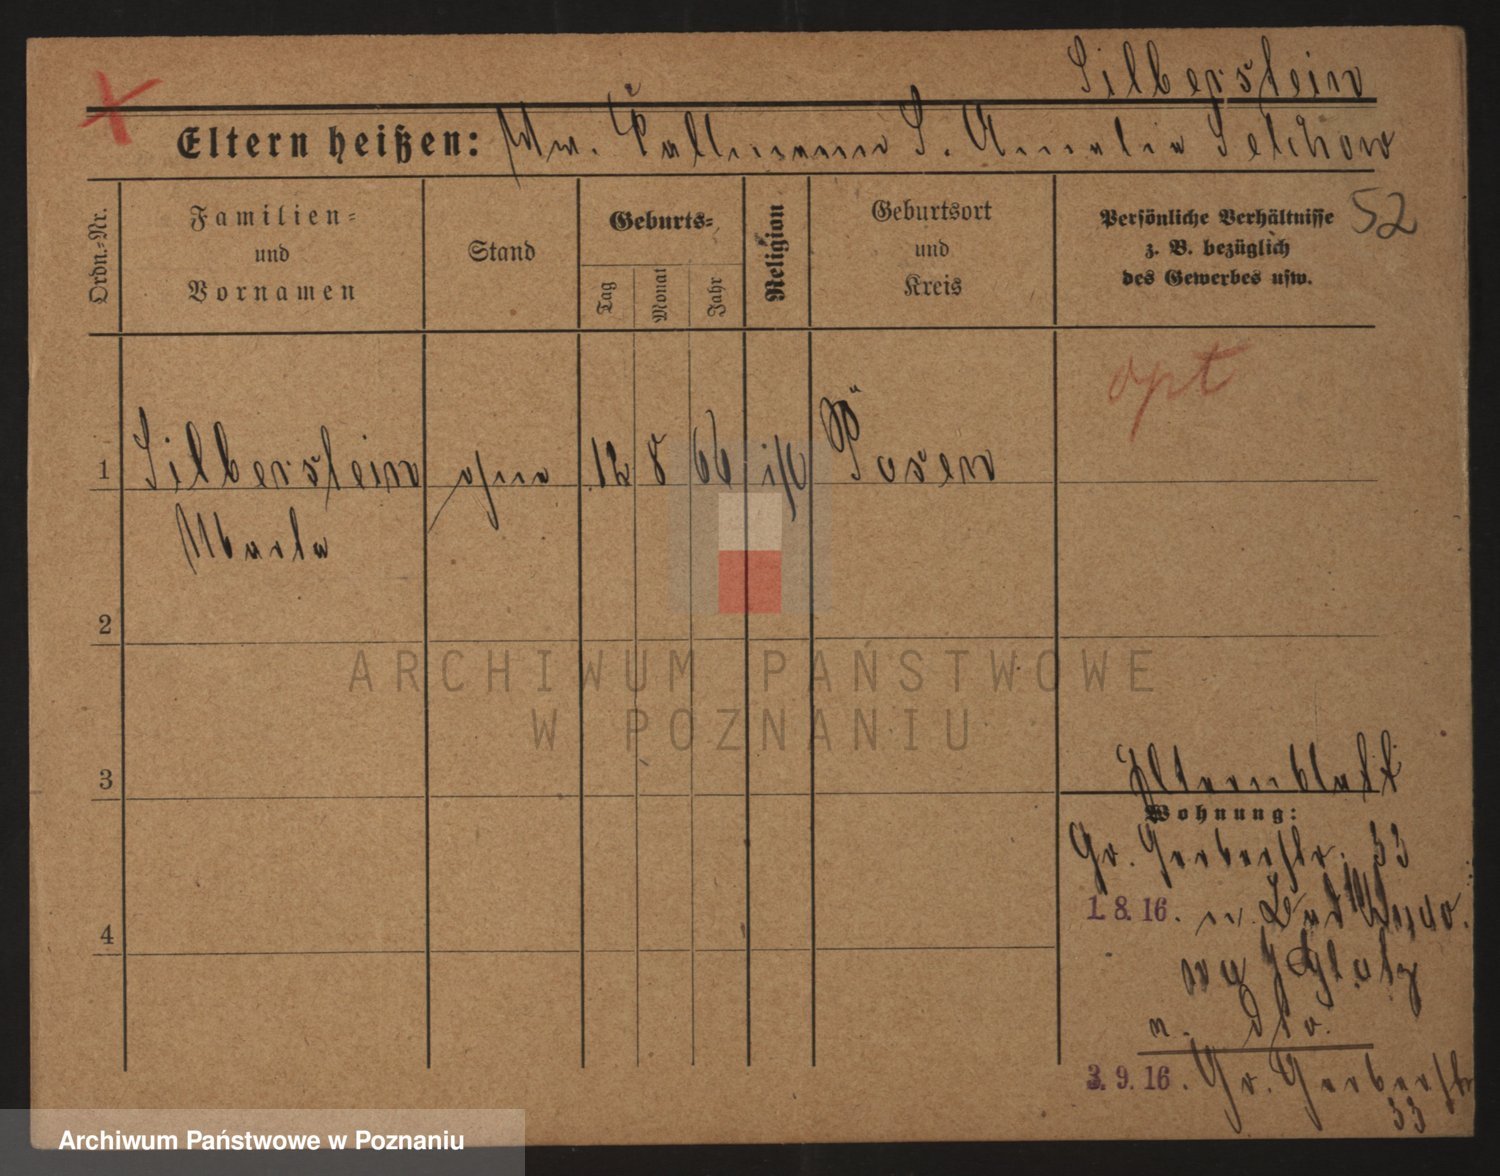 Silberstein
Eltern heißen: S. Amalie Selchow
52
Ordn.-Nr.
Familien-
und
Vornamen
Stand
Geburts-
Tag
Monat
Jahr
Religion
Geburtsort
und
Kreis
Persönliche Verhältnisse
z. B. bezüglich
des Gewerbes usw.
opt
1 Silberstein ohne 12 8 66 Posen
2
3
Elternblatt
Wohnung:
Gr. Gerberstr. 33
1. 8. 16. n. Bad
4
n. dto.
3. 9. 16. Gr. Gerberstr
33
ARCHIWUM PAŃSTWOWE
W POZNANIU
Archiwum Państwowe w Poznaniu